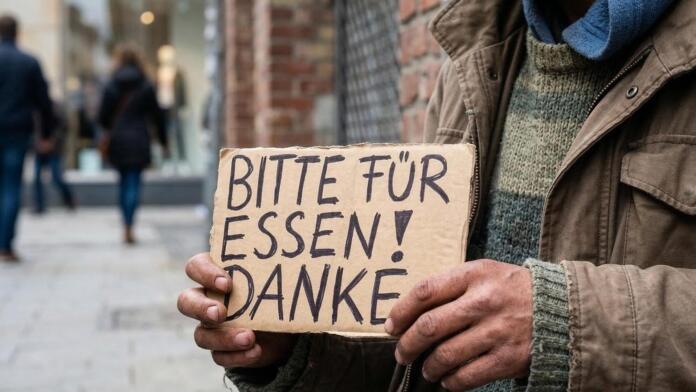 BITTE FÜR
ESSEN!
DANKE